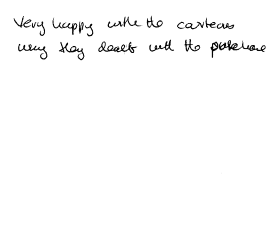 Very happy with the courteous
way they dealt with the purchase